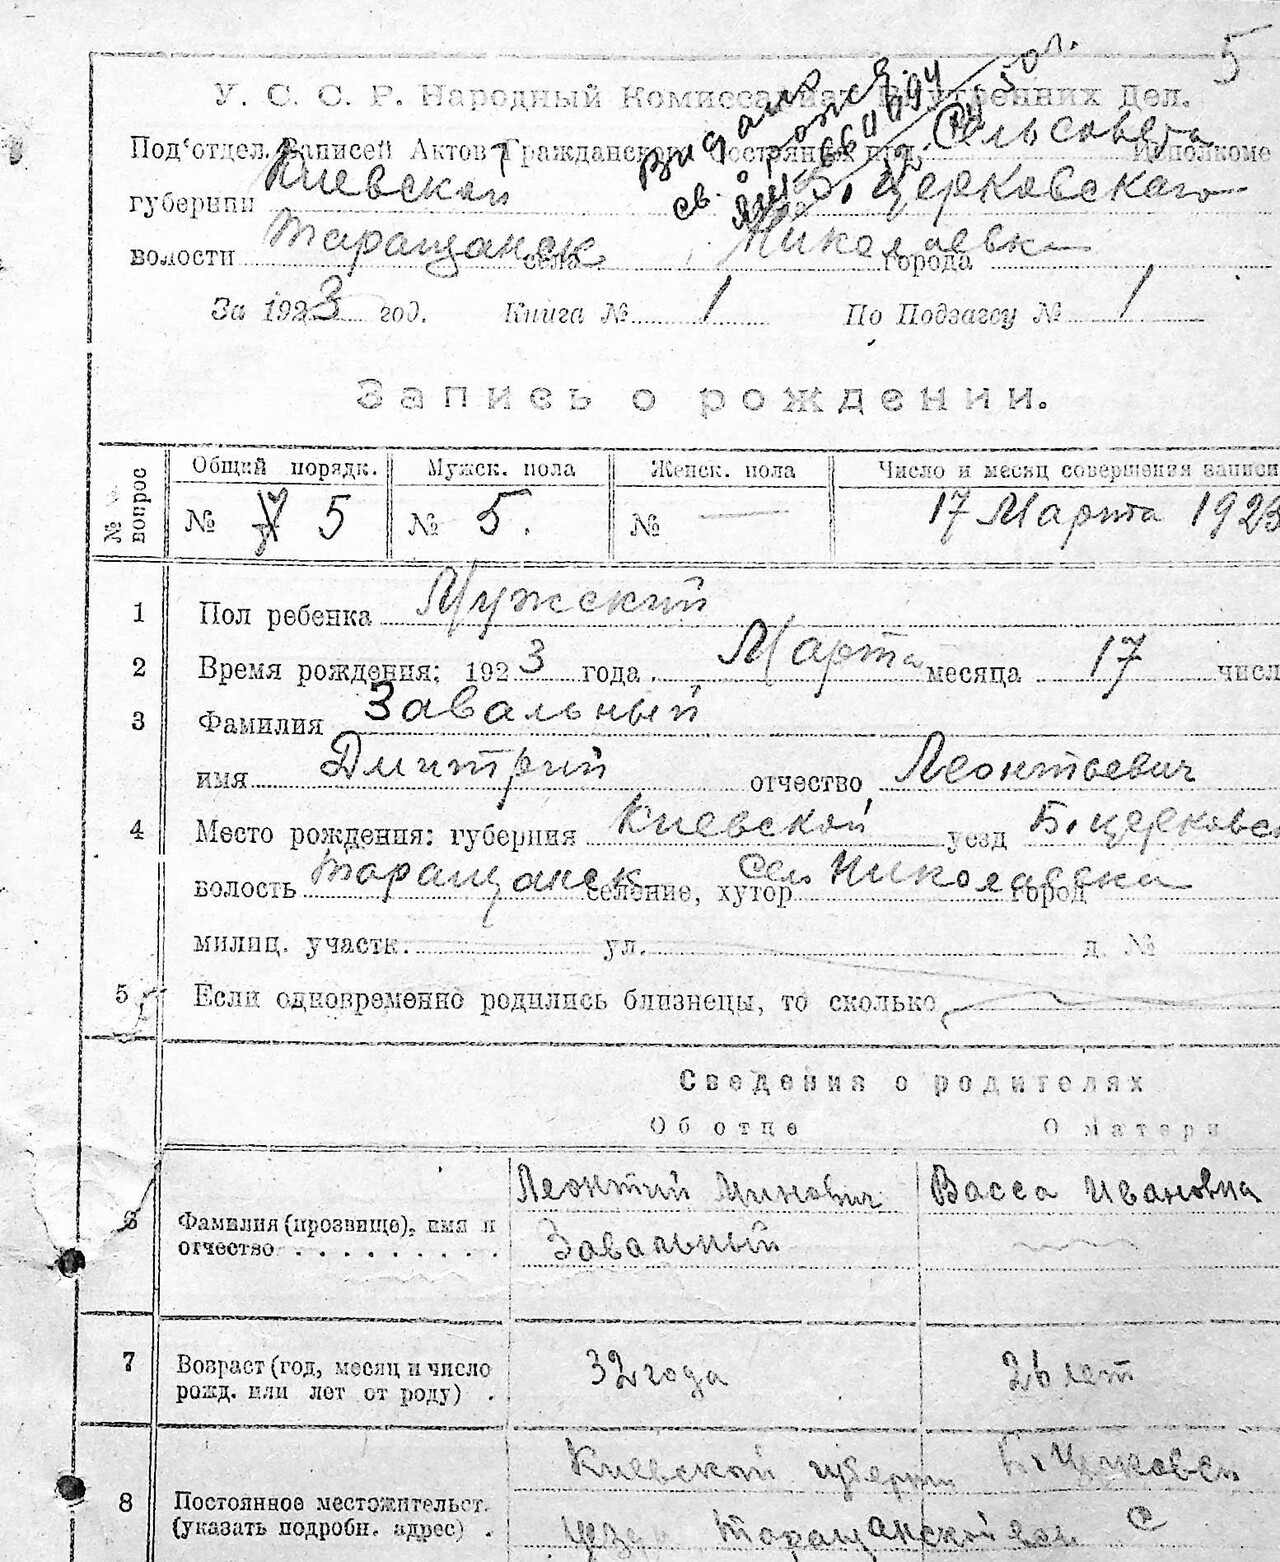 5
У. С. С. Р. Народный Комиссариат Внутренних Дел.
Под'отдел Записей Актов Гражданского Состояния при Сельсовета Исполкоме
губернии Киевской Б. Церковского
волости Таращанск села Николаевка города
За 1923 год. Книга № 1 По Подзагсу № 1
Запись о рождении.
№ вопрос Общий порядк. Мужск. пола Женск. пола Число и месяц совершения записи
№ 5 № 5. № — 17 Марта 1923
1 Пол ребенка Мужский
2 Время рождения: 1923 года Марта месяца 17 числ
3 Фамилия Завальный
имя Дмитрий отчество Леонтьевич
4 Место рождения: губерния Киевской уезд Б. Церковск
волость Таращанск селение, хутор Село Николаевка город
милиц. участк. ул. д. №
5 Если одновременно родились близнецы, то сколько
Сведения о родителях
Об отце О матери
6 Фамилия (прозвище), имя и отчество Леонтий Минович Завальный Васса Ивановна
7 Возраст (год, месяц и число рожд. или лет от роду) 32 года 26 лет
8 Постоянное местожительст. (указать подробн. адрес) Киевской губерни Б. Церковск
Таращанской вол С